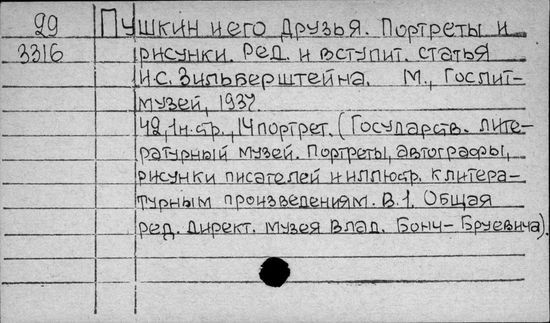 29 Пушкин и его друзья. Портреты и
3316 рисунки. Ред. и вступит. статья
И.С. Зильберштейна. М., Гослит-
музей, 1937
42, 1н.стр., 14 портрет. (Государств. лите-
ратурный музей. Портреты, автографы,
рисунки писателей и иллюстр. к литера-
турным произведениям. В.1. Общая
ред. директ. музея Влад. Бонч-Бруевича).